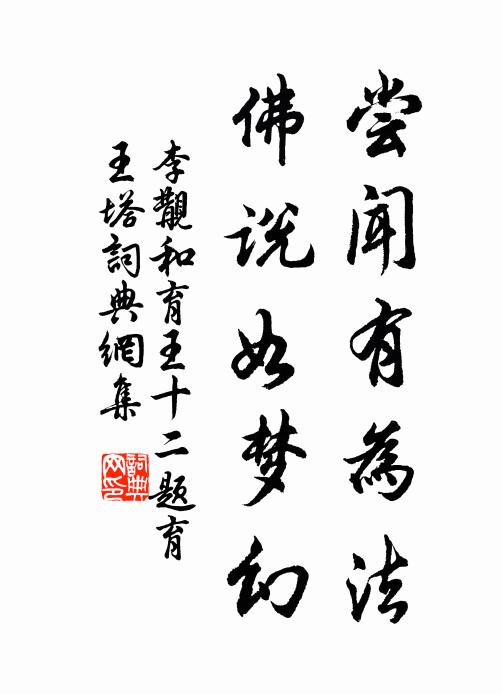 尝闻有為法
佛说如梦幻
李觀和育王十二题育
王塔詞典網集
詞典網印